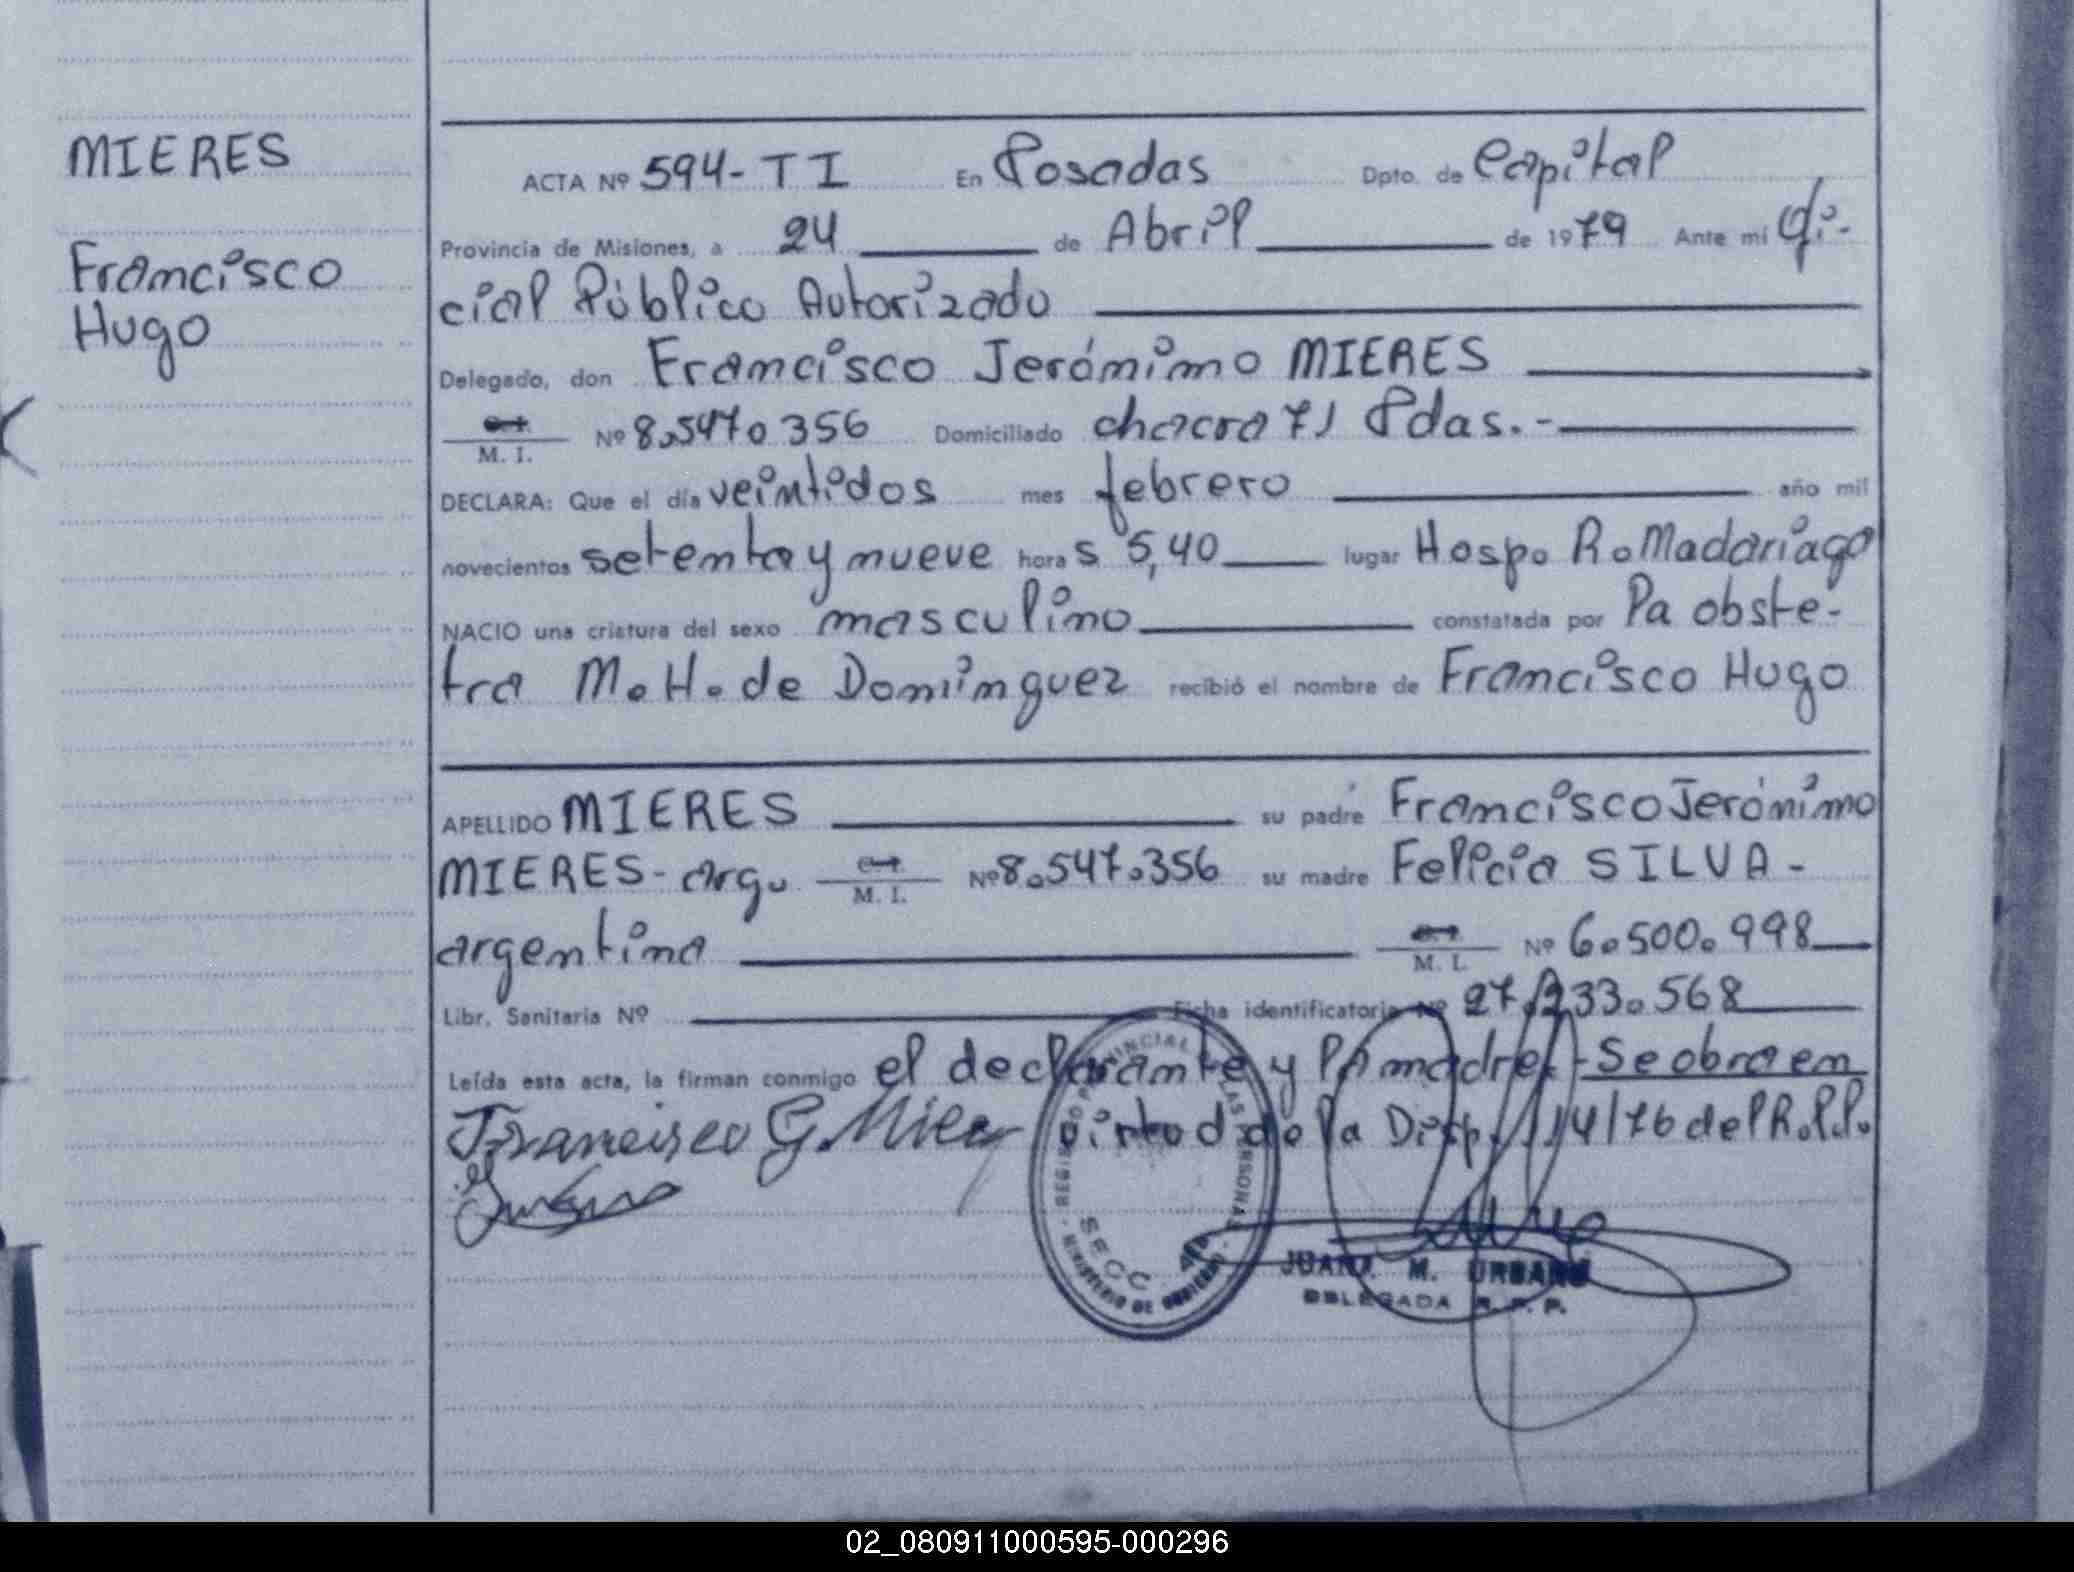 MIERES
Francisco
Hugo
ACTA Nº 594-TI En Posadas Dpto. de Capital
Provincia de Misiones, a 24 de Abril de 1979 Ante mi Ofi-
cial Público Autorizado
Delegado, don Francisco Jerónimo MIERES
M. I. Nº 8.547.356 Domiciliado chacra 71 Pdas.-
DECLARA: Que el día veintidos mes febrero año mil
novecientos setenta y nueve horas 5,40 lugar Hosp. R. Madariaga
NACIO una criatura del sexo masculino constatada por la obste-
tra M. H. de Dominguez recibió el nombre de Francisco Hugo
APELLIDO MIERES su padre Francisco Jerónimo
MIERES - arg. M. I. Nº 8.547.356 su madre Felicia SILVA -
argentina M. I. Nº 6.500.998
Libr. Sanitaria Nº Ficha identificatoria Nº 27.233.568
Leída esta acta, la firman conmigo el declarante y la madre.- Se obra en
virtud de la Disp. 114/76 del R.P.P.
Francisco G. Mier
REGISTRO PROVINCIAL DE LAS PERSONAS - MINISTERIO DE GOBIERNO -
SECC
JUANA M. URBANO
DELEGADA R. P. P.
02_080911000595-000296